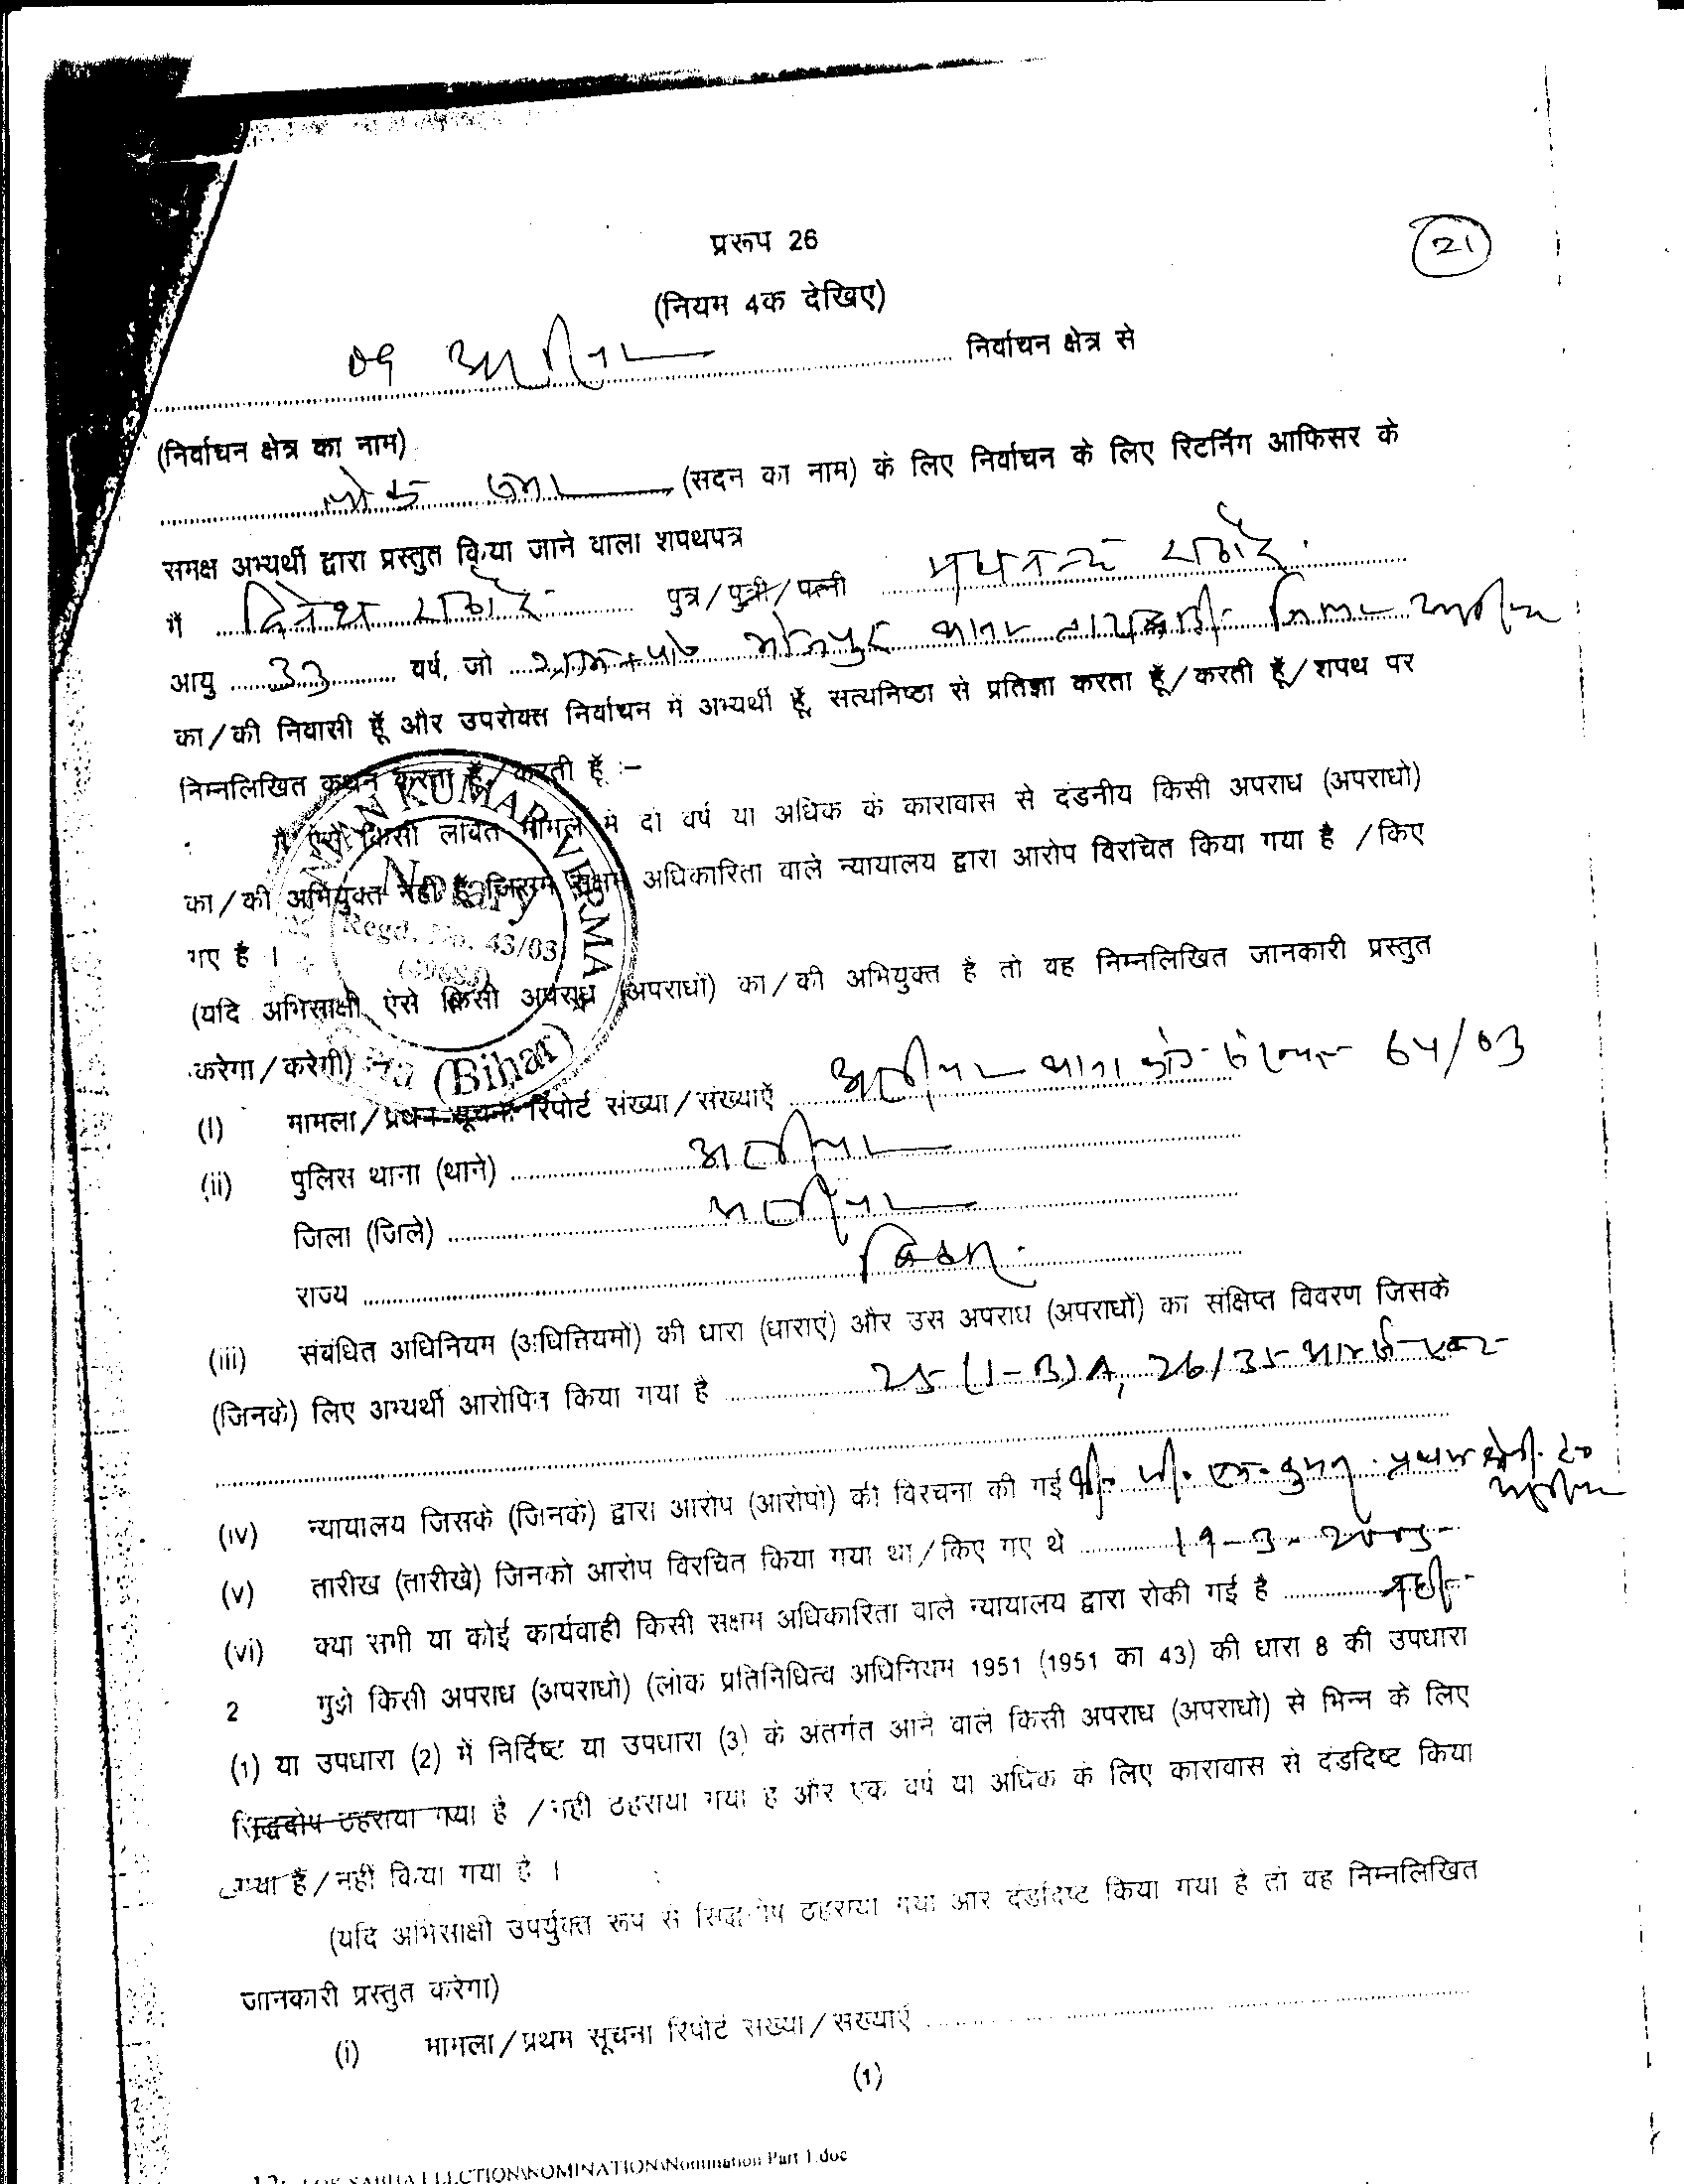 प्ररूप 26
21
(नियम 4क देखिए)
09 अररिया निर्वाचन क्षेत्र से
(निर्वाचन क्षेत्र का नाम)
लोक सभा (सदन का नाम) के लिए निर्वाचन के लिए रिटर्निंग आफिसर के
समक्ष अभ्यर्थी द्वारा प्रस्तुत किया जाने वाला शपथपत्र
मैं दिनेश राठौर पुत्र/पुत्री/पत्नी राठौर
आयु 33 वर्ष, जो थाना जिला अररिया
का/की निवासी हूँ और उपरोक्त निर्वाचन में अभ्यर्थी हूँ, सत्यनिष्ठा से प्रतिज्ञा करता हूँ/करती हूँ/शपथ पर
निम्नलिखित कथन करता हूँ/करती हूँ :-
मैं ऐसे किसी लंबित मामले में दो वर्ष या अधिक के कारावास से दंडनीय किसी अपराध (अपराधो)
का/की अभियुक्त नहीं हूँ जिसमें सक्षम अधिकारिता वाले न्यायालय द्वारा आरोप विरचित किया गया है /किए
गए है ।
KUMAR VERMA
Notary
Regd. No. 43/03
(Bihar)
(यदि अभिसाक्षी ऐसे किसी अपराध (अपराधों) का/की अभियुक्त है तो वह निम्नलिखित जानकारी प्रस्तुत
करेगा/करेगी) :-
(i) मामला/प्रथम सूचना रिपोर्ट संख्या/संख्याएँ अररिया थाना कांड संख्या 64/03
(ii) पुलिस थाना (थाने) अररिया
जिला (जिले) अररिया
राज्य बिहार
(iii) संबंधित अधिनियम (अधिनियमों) की धारा (धाराएं) और उस अपराध (अपराधों) का संक्षिप्त विवरण जिसके
(जिनके) लिए अभ्यर्थी आरोपित किया गया है 25 (1-B)A, 26/35 आर्म्स एक्ट
(iv) न्यायालय जिसके (जिनके) द्वारा आरोप (आरोपो) की विरचना की गई श्री प्रथम श्रेणी
अररिया
(v) तारीख (तारीखे) जिनको आरोप विरचित किया गया था/किए गए थे 19-3-2005
(vi) क्या सभी या कोई कार्यवाही किसी सक्षम अधिकारिता वाले न्यायालय द्वारा रोकी गई है नहीं
2 मुझे किसी अपराध (अपराधो) (लोक प्रतिनिधित्व अधिनियम 1951 (1951 का 43) की धारा 8 की उपधारा
(1) या उपधारा (2) में निर्दिष्ट या उपधारा (3) के अंतर्गत आने वाले किसी अपराध (अपराधो) से भिन्न के लिए
सिद्धदोष ठहराया गया है /नही ठहराया गया है और एक वर्ष या अधिक के लिए कारावास से दंडदिष्ट किया
गया है/नहीं किया गया है ।
(यदि अभिसाक्षी उपर्युक्त रूप से सिद्धदोष ठहराया गया और दंडादिष्ट किया गया है तो वह निम्नलिखित
जानकारी प्रस्तुत करेगा)
(i) मामला/प्रथम सूचना रिपोर्ट संख्या/संख्याएँ
(1)
SABHA ELECTION\NOMINATION\Nomination Part 1.doc